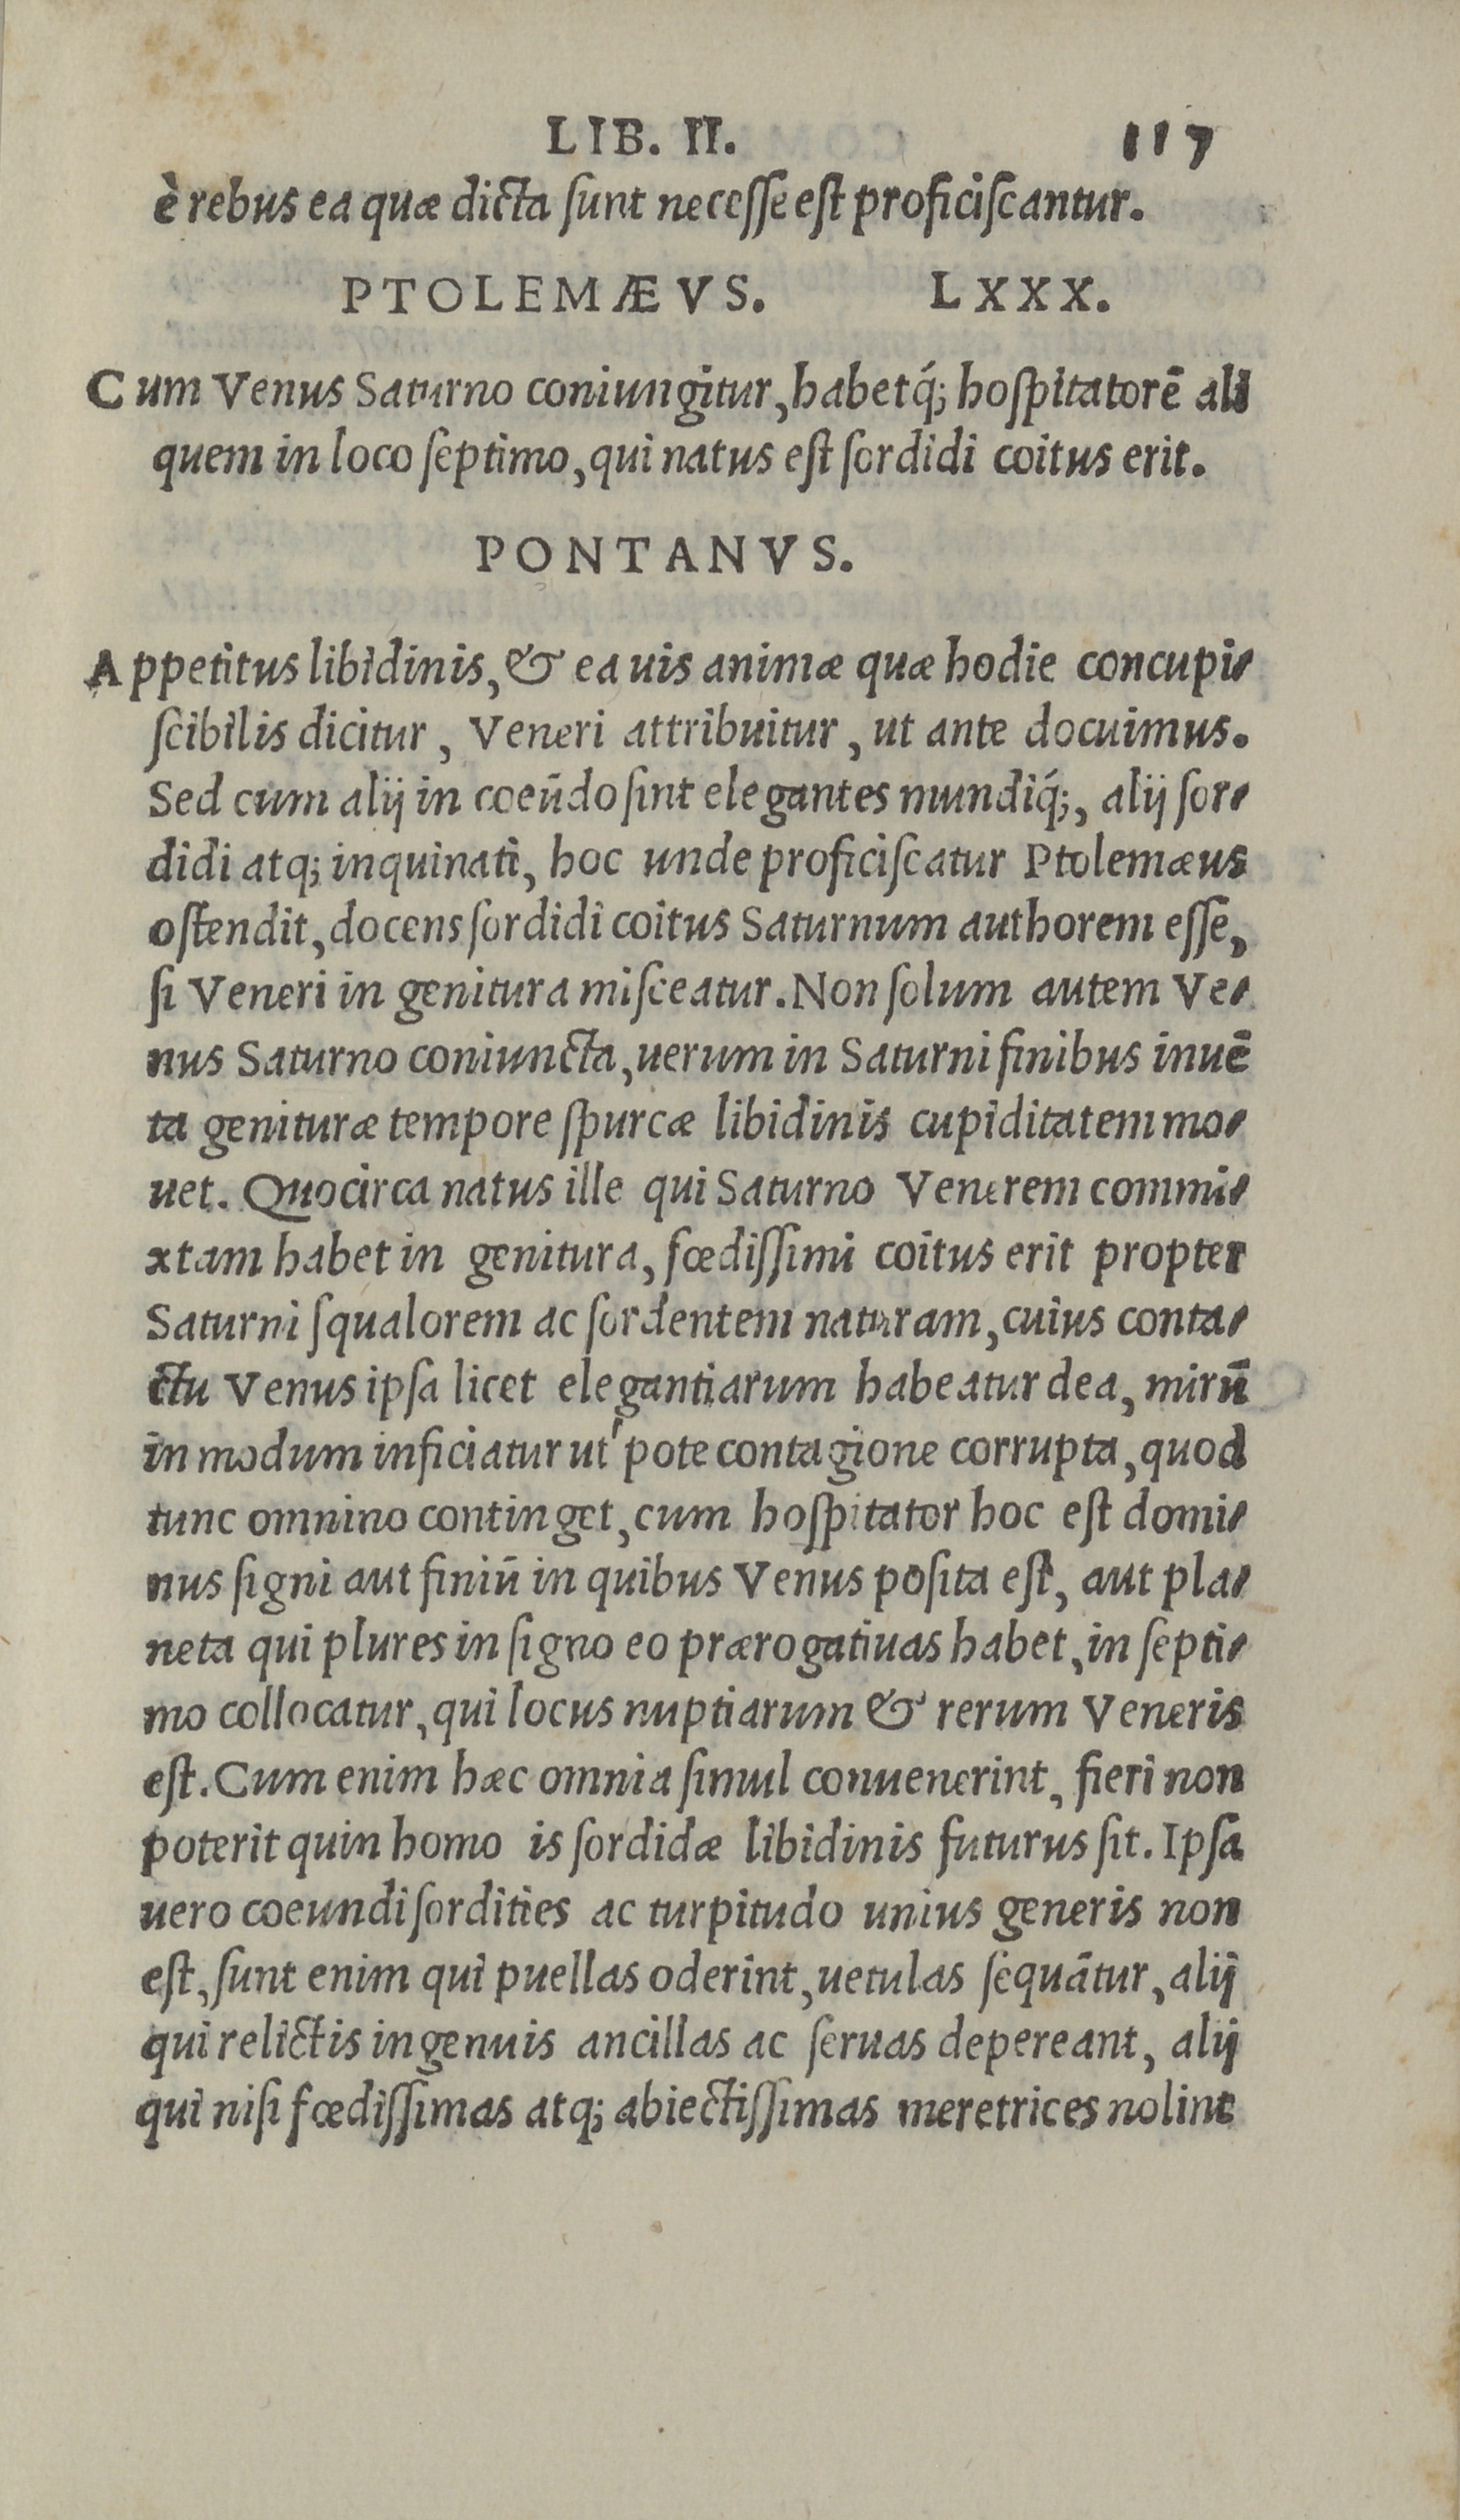 LIB. II. 117
è rebus ea quæ dicta ſunt neceſſe eſt proficiſcantur.
PTOLEMÆVS. LXXX.
Cum Venus Saturno coniungitur, habetq́; hoſpitatorē ali
quem in loco ſeptimo, qui natus eſt ſordidi coitus erit.
PONTANVS.
Appetitus libidinis, & ea uis animæ quæ hodie concupi-
ſcibilis dicitur, Veneri attribuitur, ut ante docuimus.
Sed cum alij in coeūdo ſint elegantes mundiq́;, alij ſor-
didi atq; inquinati, hoc unde proficiſcatur Ptolemæus
oſtendit, docens ſordidi coitus Saturnum authorem eſſe,
ſi Veneri in genitura miſceatur. Non ſolum autem Ve-
nus Saturno coniuncta, uerum in Saturni finibus inuē
ta genituræ tempore ſpurcæ libidinis cupiditatem mo-
uet. Quocirca natus ille qui Saturno Venerem commi-
xtam habet in genitura, fœdiſſimi coitus erit propter
Saturni ſqualorem ac ſordentem naturam, cuius conta-
ctu Venus ipſa licet elegantiarum habeatur dea, mirū
in modum inficiatur ut'pote contagione corrupta, quod
tunc omnino continget, cum hoſpitator hoc eſt domi-
nus ſigni aut finiū in quibus Venus poſita eſt, aut pla-
neta qui plures in ſigno eo prærogatiuas habet, in ſepti-
mo collocatur, qui locus nuptiarum & rerum Veneris
eſt. Cum enim hæc omnia ſimul conuenerint, fieri non
poterit quin homo is ſordidæ libidinis futurus ſit. Ipſa
uero coeundi ſordities ac turpitudo unius generis non
eſt, ſunt enim qui puellas oderint, uetulas ſequātur, alij
qui relictis ingenuis ancillas ac ſeruas depereant, alij
qui niſi fœdiſſimas atq; abiectiſſimas meretrices nolint